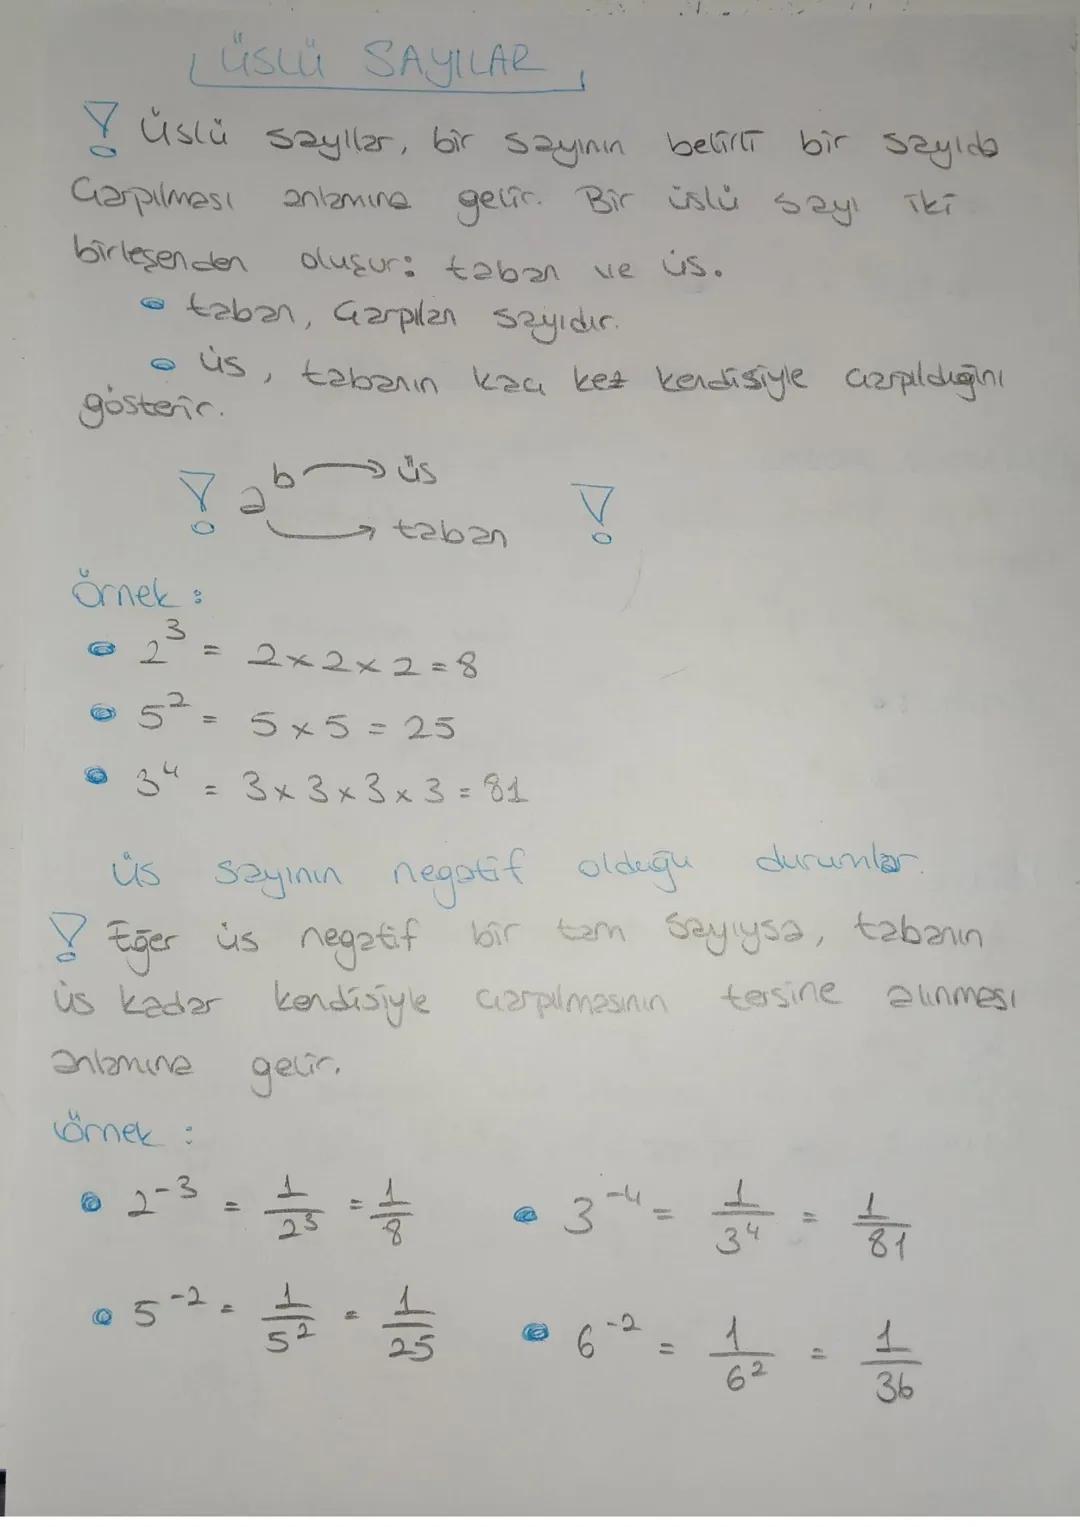 ÜSLÜ SAYILAR
! Üslü sayılar, bir sayının belirli bir sayıda
çarpılması anlamına gelir. Bir üslü sayı iki
birleşenden oluşur: taban ve üs.
• taban, çarpılan sayıdır.
• üs, tabanın kaç kez kendisiyle çarpıldığını
gösterir.
! a^b → üs !
→ taban
Örnek :
• 2^3 = 2x2x2=8
• 5^2 = 5x5 = 25
• 3^4 = 3x3x3x3=81
üs sayının negatif olduğu durumlar.
! Eğer üs negatif bir tam sayıysa, tabanın
üs kadar kendisiyle çarpılmasının tersine alınması
anlamına gelir.
örnek :
• 2^-3 = 1/2^3 = 1/8 • 3^-4 = 1/3^4 = 1/81
• 5^-2 = 1/5^2 = 1/25 • 6^-2 = 1/6^2 = 1/36